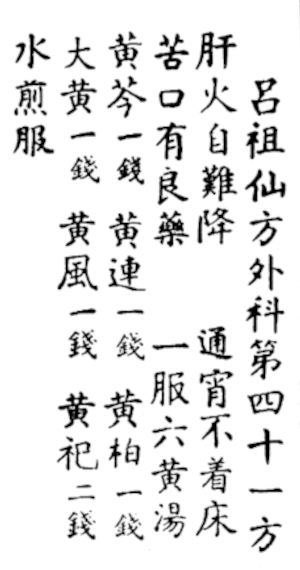 呂祖仙方外科第四十一方
肝火自難降 通宵不着床
苦口有良藥 一服六黃湯
黃芩一錢 黃連一錢 黃柏一錢
大黃一錢 黃風一錢 黃祀二錢
水煎服